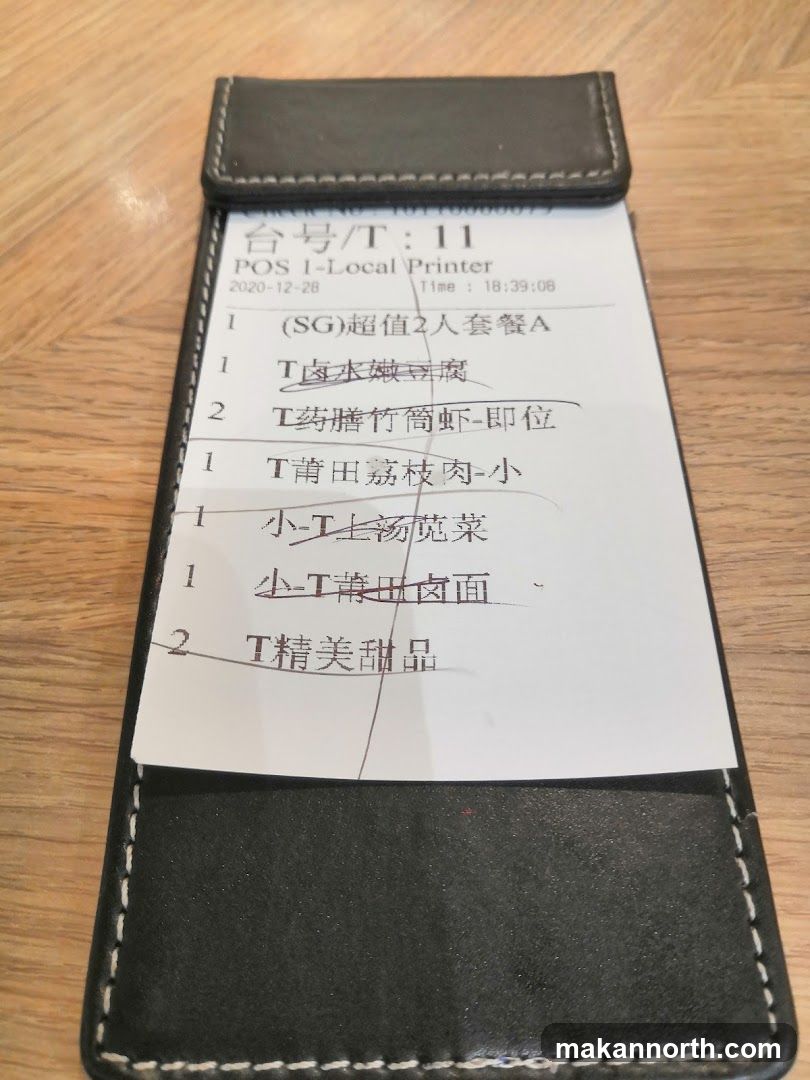 台号/T : 11
POS 1-Local Printer
2020-12-28 Time : 18:39:08
1 (SG)超值2人套餐A
1 T卤水嫩豆腐
2 T药膳竹筒虾-即位
1 T莆田荔枝肉-小
1 小-T上汤苋菜
1 小-T莆田卤面
2 T精美甜品
makannorth.com